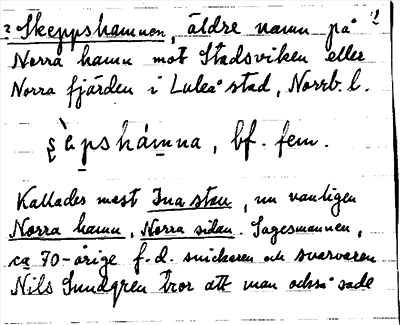 ? Skeppshamnen, äldre namn på
Norra hamn mot Stadsviken eller
Norra fjärden i Luleå stad, Norrb. l.
bf. fem.
Kallades mest Ina stan, nu vanligen
Norra hamn, Norra sidan. Sagesmannen,
ca 70-årige f.d. snickaren och svarvaren
Nils Sundgren tror att man också sade